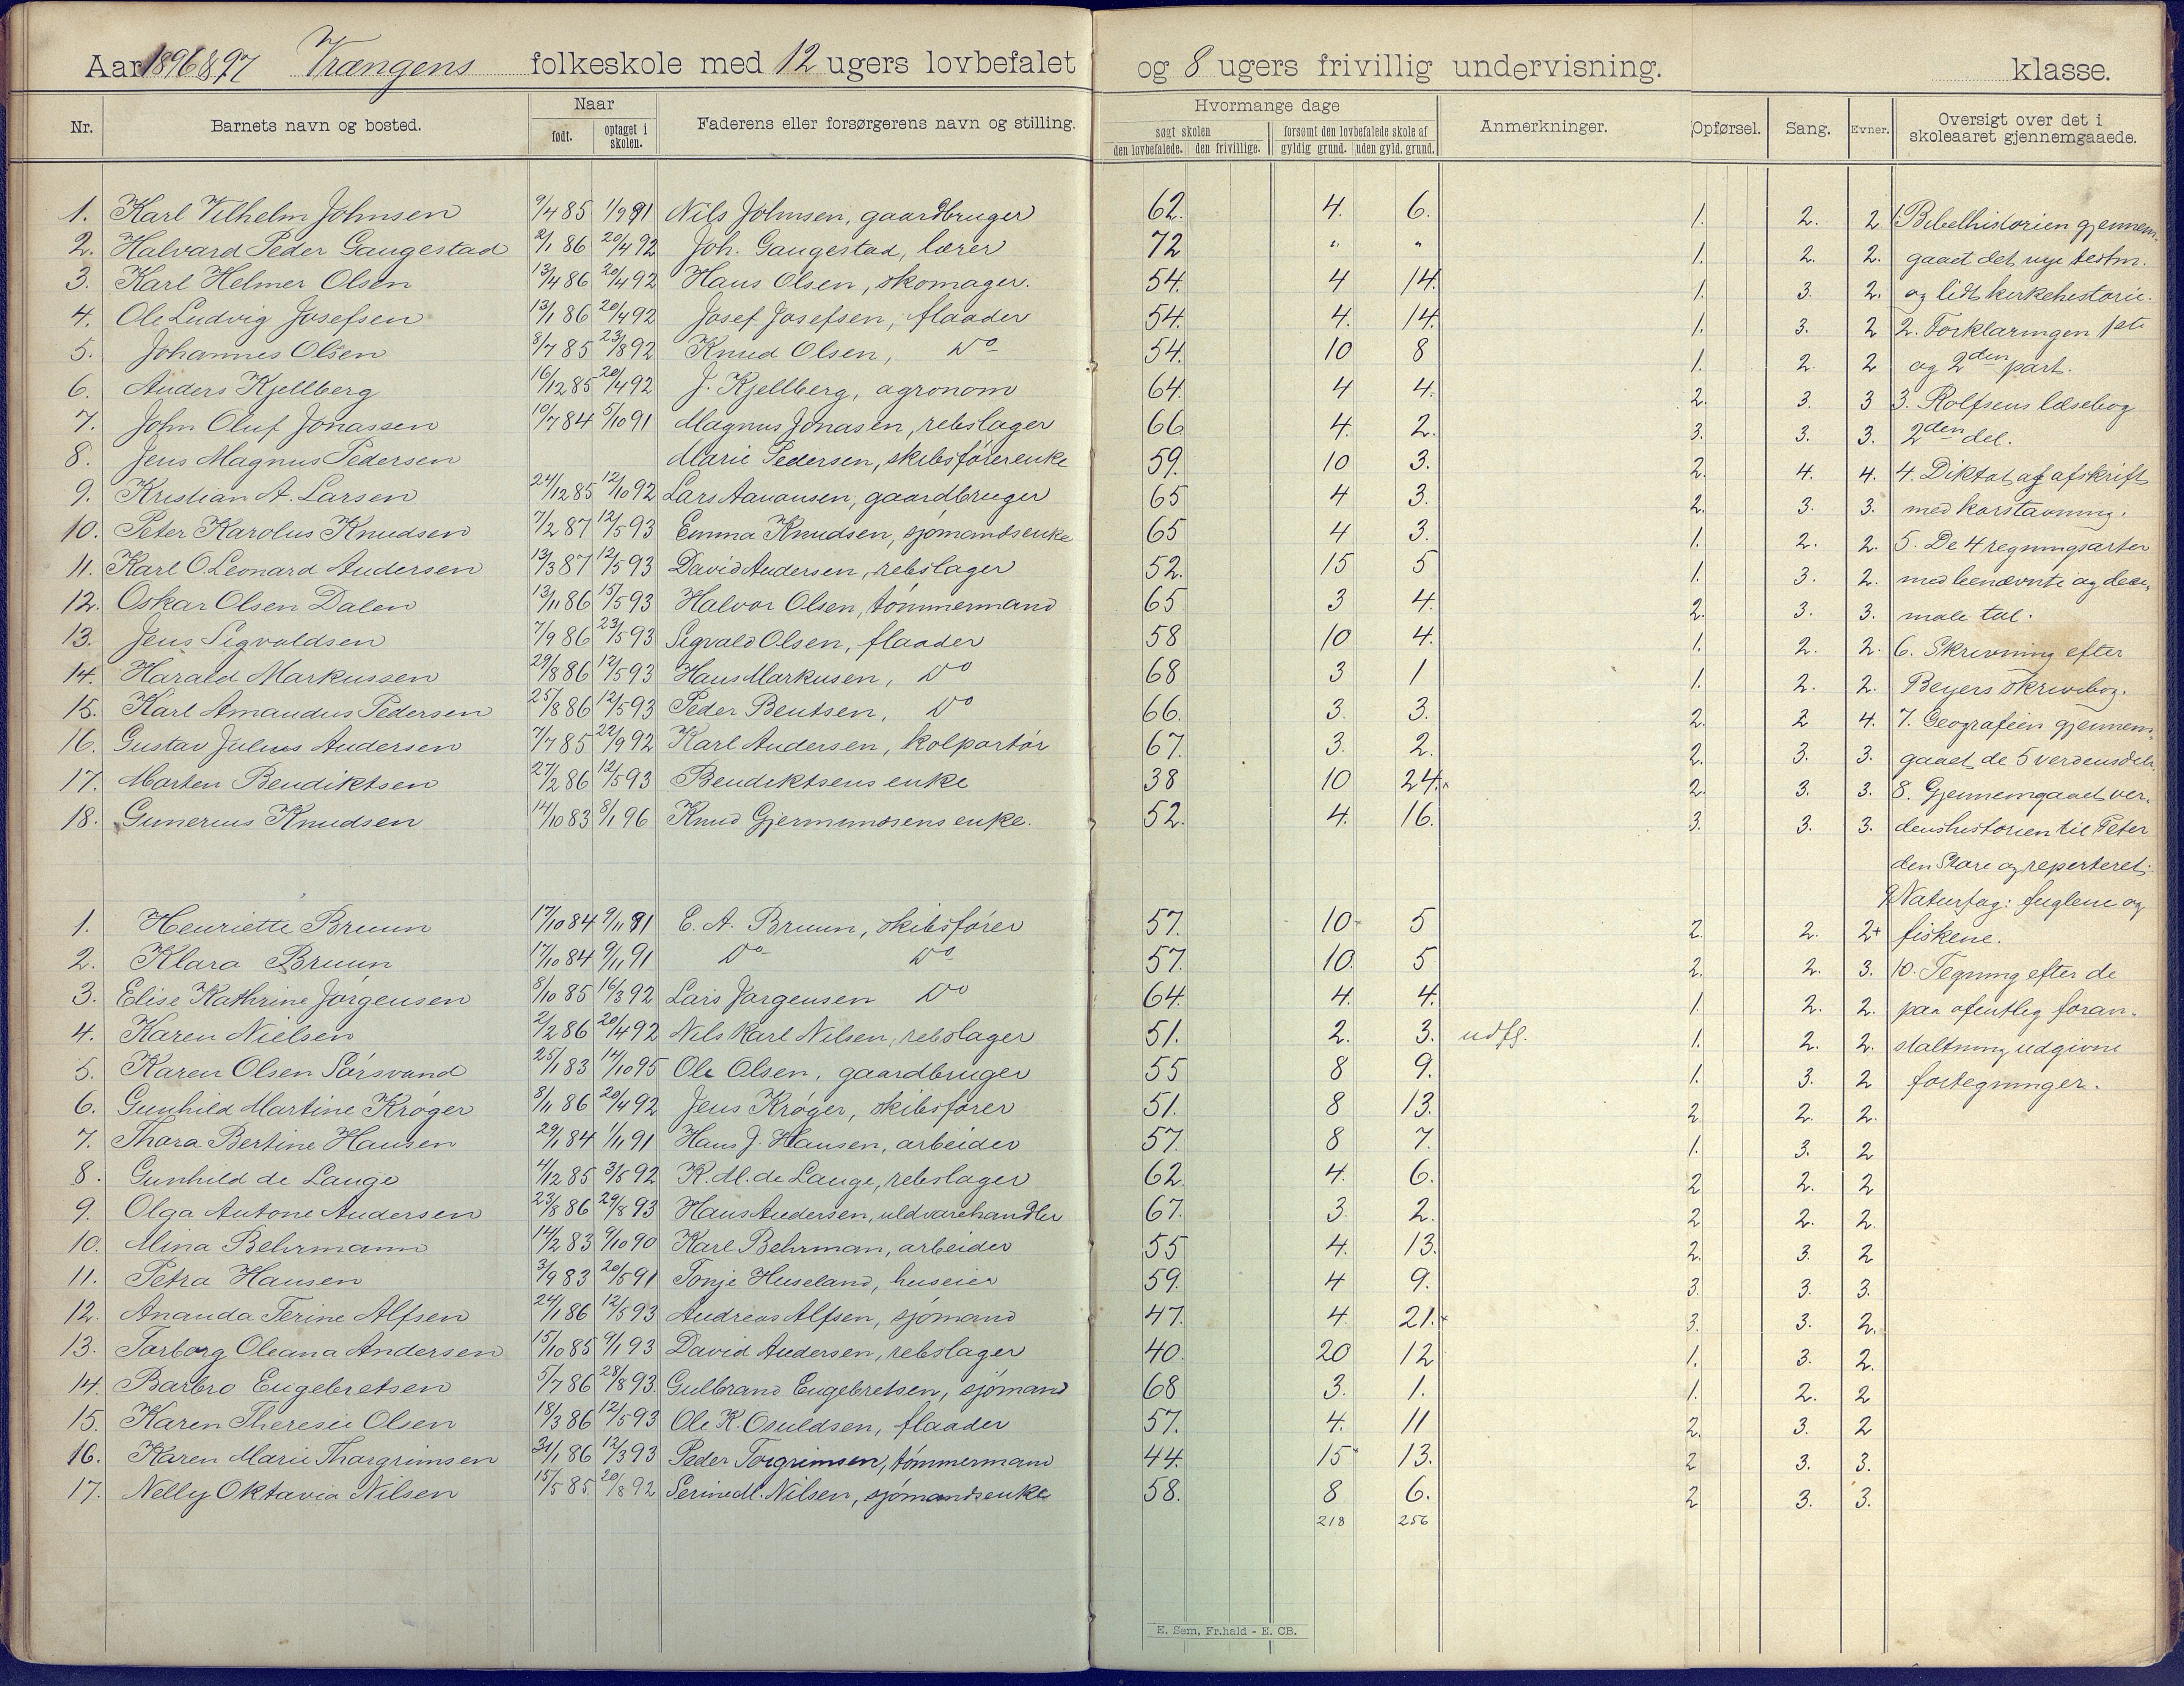 Aar 1896 & 97 Vrængens folkeskole med 12 ugers lovbefalet og 8 ugers frivillig undervisning. klasse.
Nr. Barnets navn og bosted. Naar født. optaget i skolen. Faderens eller forsørgerens navn og stilling. Hvormange dage søgt skolen den lovbefalede. den frivillige. forsømt den lovbefalede skole af gyldig grund. uden gyld. grund. Anmerkninger. Opførsel. Sang. Evner. Oversigt over det i skoleaaret gjennemgaaede.
1. Karl Vilhelm Johnsen 9/4 85 1/9 91 Nils Johnsen, gaardbruger 62. 4. 6. 1. 2. 2 1. Bibelhistorien gjennem-
2. Halvard Peder Gaugestad 2/1 86 20/4 92 Joh. Gaugestad, lærer 72 " " 1. 2. 2. gaaet det nye testm.
3. Karl Helmer Olsen 13/4 86 20/4 92 Hans Olsen, skomager. 54. 4 14. 1. 3. 2. og lidt kirkehistorie.
4. Ole Ludvig Josefsen 13/1 86 20/4 92 Josef Josefsen, flaader 54. 4. 14. 1. 3. 2 2. Forklaringen 1ste
5. Johannes Olsen 8/7 85 23/8 92 Knud Olsen, Do 54. 10 8 1. 2. 2 og 2den part.
6. Anders Kjellberg 16/12 85 20/4 92 J. Kjellberg, agronom 64. 4 4. 2. 3. 3 3. Rolfsens læsebog
7. John Oluf Jonassen 10/7 84 5/10 91 Magnus Jonasen, rebslager 66 4. 2. 3. 3. 3. 2den del.
8. Jens Magnus Pedersen Marie Pedersen, skibsførerenke 59. 10 3. 2. 4. 4. 4. Diktat og afskrift
9. Kristian A. Larsen 24/12 85 12/10 92 Lars Aanonsen, gaardbruger 65 4 3. 2. 3. 3. med
10. Peter Karolus Knudsen 7/2 87 12/5 93 Emma Knudsen, sjømandsenke 65 4 3. 1. 2. 2. 5. De 4 regningsarter
11. Karl O Leonard Andersen 13/3 87 12/5 93 David Andersen, rebslager 52. 15 5 1. 3. 2. med benævnte og deci-
12. Oskar Olsen Dalen 13/11 86 15/5 93 Halvor Olsen, tømmermand 65 3 4. 2. 3. 3. male tal.
13. Jens Sigvaldsen 7/9 86 23/5 93 Sigvald Olsen, flaader 58 10 4. 1. 2. 2. 6. Skrivning efter
14. Harald Markussen 29/8 86 12/5 93 Hans Markusen, Do 68 3 1 1. 2. 2. Beyers skrivebog.
15. Karl Amandus Pedersen 25/8 86 12/5 93 Peder Bentsen, Do 66. 3. 3. 2. 2 4. 7. Geografien gjennem-
16. Gustav Julius Andersen 7/7 85 22/9 92 Karl Andersen, kolportør 67. 3. 2. 2. 3. 3. gaaet de 5 verdensdele.
17. Morten Bendiktsen 27/2 86 12/5 93 Bendiktsens enke 38 10 24. 2. 3. 3. 8. Gjennemgaaet ver-
18. Gunerius Knudsen 14/10 83 8/1 96 Knud Gjermundsens enke. 52. 4. 16. 3. 3. 3. denshistorien til Peter
den Store og reperteret.
9 Naturfag: fuglene og
1. Henriette Bruun 17/10 84 9/11 91 E. A. Bruun, skibsfører 57. 10 5 2. 2. 2+ fiskene.
2. Klara Bruun 17/10 84 9/11 91 Do Do 57. 10. 5 2. 2. 3. 10. Tegning efter de
3. Elise Kathrine Jørgensen 8/10 85 16/3 92 Lars Jørgensen Do 64. 4. 4. 1. 2. 2. paa ofentlig foran-
4. Karen Nielsen 2/2 86 20/4 92 Nils Karl Nilsen, rebslager 51. 2. 3. udfl. 1. 2. 2. staltning udgivne
5. Karen Olsen Sørsvand 25/1 83 14/10 95 Ole Olsen, gaardbruger 55 8 9. 1. 3. 2 fortegninger.
6. Gunhild Martine Krøger 8/11 86 20/4 92 Jens Krøger, skibsfører 51. 8 13. 2. 2. 2.
7. Thora Bertine Hansen 29/1 84 1/11 91 Hans J. Hansen, arbeider 57. 8 7. 1. 3. 2
8. Gunhild de Lange 4/12 85 3/5 92 K. M. de Lange, rebslager 62. 4. 6. 2 2. 2
9. Olga Antone Andersen 23/8 86 29/8 93 Hans Andersen, uldvarehandler 67. 3. 2. 2 2. 2.
10. Mina Behrmann 14/2 83 9/10 90 Karl Behrman, arbeider 55 4. 13. 2. 3. 2
11. Petra Hansen 3/9 83 20/5 91 Tonje Huseland, huseier 59. 4 9. 3. 3. 3.
12. Ananda Terine Alfsen 24/1 86 12/5 93 Andreas Alfsen, sjømand 47. 4. 21. 3. 3. 2.
13. Torborg Oleana Andersen 15/10 85 9/1 93 David Andersen, rebslager 40. 20 12 1. 3. 2.
14. Barbro Engebretsen 5/7 86 28/8 93. Gulbrand Engebretsen, sjømand 68 3. 1. 1. 2. 2
15. Karen Theresie Olsen 18/3 86 12/5 93 Ole K. Osuldsen, flaader 57. 4. 11 2. 3. 2
16. Karen Marie Thorgrimsen 31/1 86 12/3 93 Peder Torgrimsen, tømmermand 44. 15 13. 2 3. 3.
17. Nelly Oktavia Nilsen 15/5 85 20/8 92 Nilsen, sjømandsenke 58. 8 6. 2 3. 3.
218 256
E. Sem, Fr.hald - E. CB.